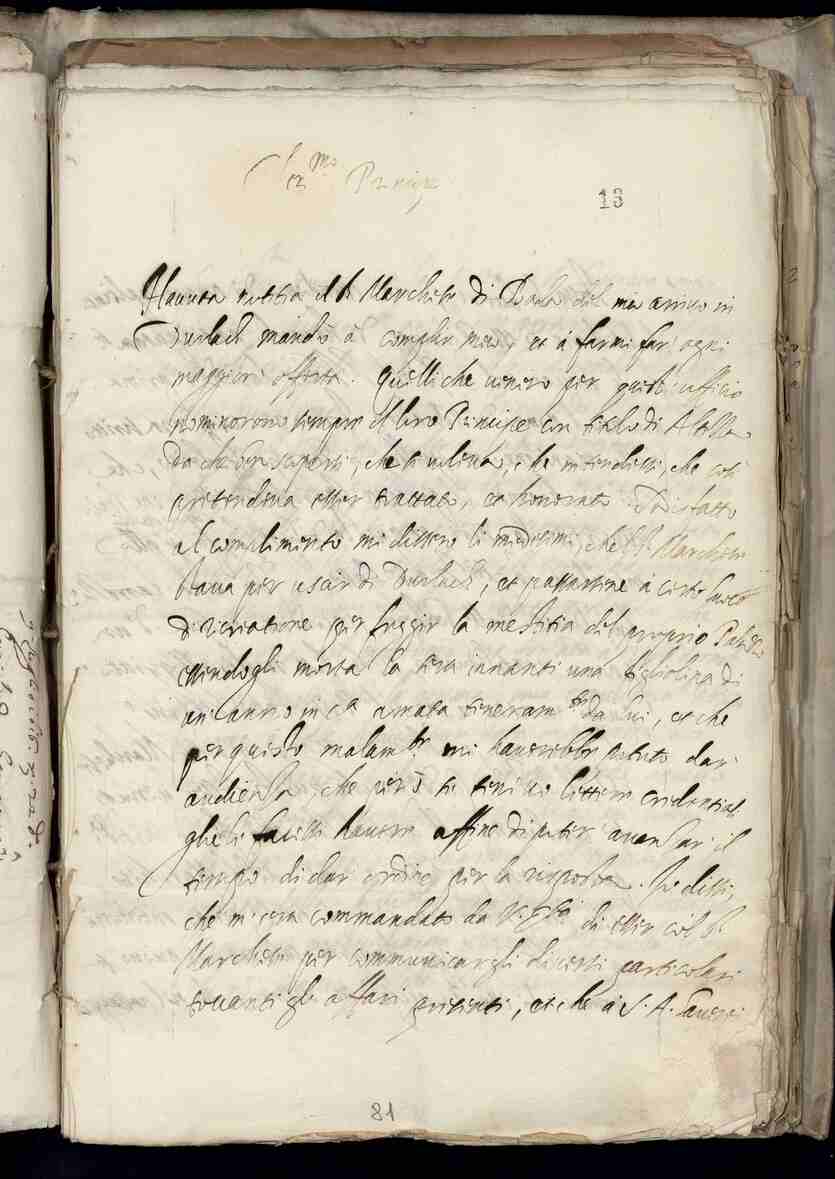 Ser.mo Prencipe
13
Havuta notitia il S.r Marchese di Bada del mio arrivo in
Durlach mandò à complir meco, et à farmi far ogni
maggiore offerta. Quelli che venero per questo ufficio
nominorono sempre il loro Prencipe con titolo di Altezza
da che ben scopersi, che si voleva, che intendessi, che così
pretendeva esser trattato, et honorato.
al complimento mi dissero li medesimi, che il S.r Marchese
stava per uscir di Durlach, et passarsene à certo luoco
di recreatione per fuggir la mestitia del proprio Palazzo
essendogli morta la sera innanti una figliolina di
un anno in c.a amata teneram.te da lui, et che
per questo malam.te mi haverebbe potuto dar
audienza, che però se tenivo lettere credentiali
ghe le facessi havere affine di poter avanzar il
tempo di dar ordine per la risposta. Io dissi,
che m'era commandato da V. Ser.tà di esser col S.r
Marchese per communicargli diversi particolari
toccanti gli affari presenti, et che à S. A. haverei
81